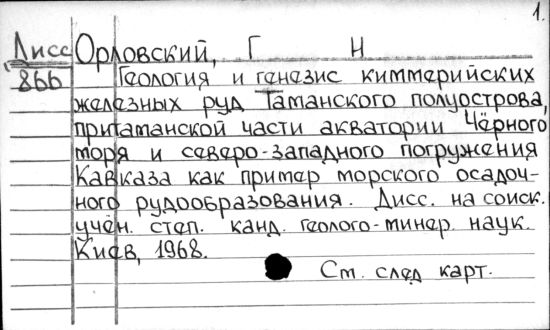 1.
Дисс Орловский, Г Н
866 Геология и генезис киммерийских
железных руд Таманского полуострова,
притаманской части акватории Чёрного
моря и северо-западного погружения
Кавказа как пример морского осадоч-
ного рудообразования. Дисс. на соиск.
учён. степ. канд. геолого-минер. наук.
Киев, 1968.
См. след карт.